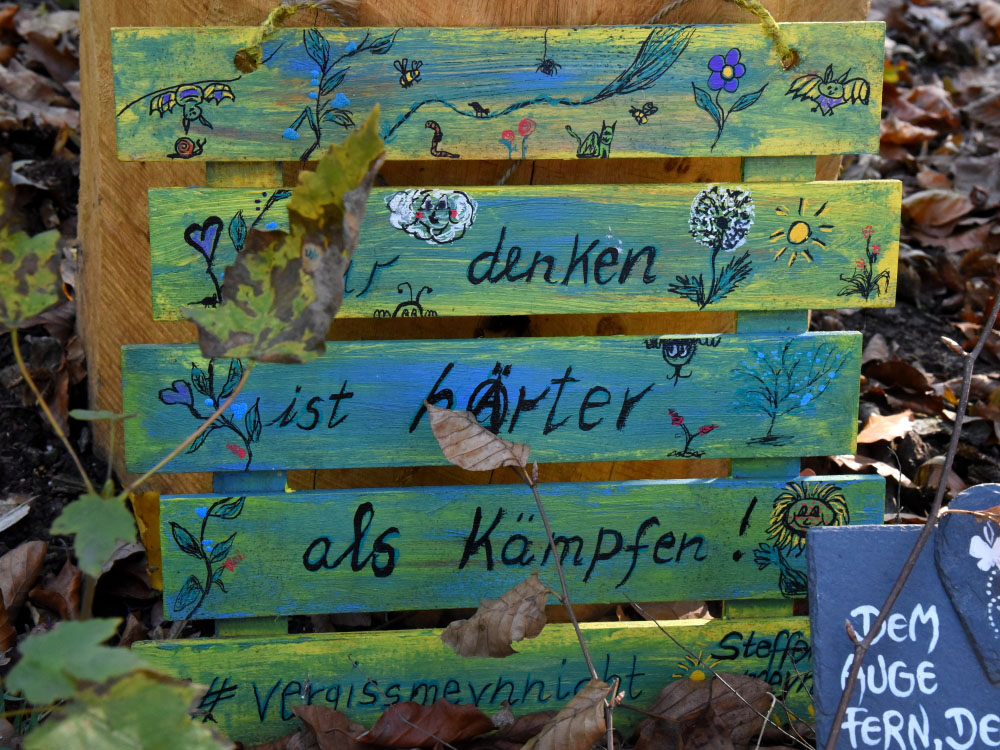 denken
ist hÄrter
als Kämpfen !
#vergissmeynnicht
DEM
AUGE
FERN, DE